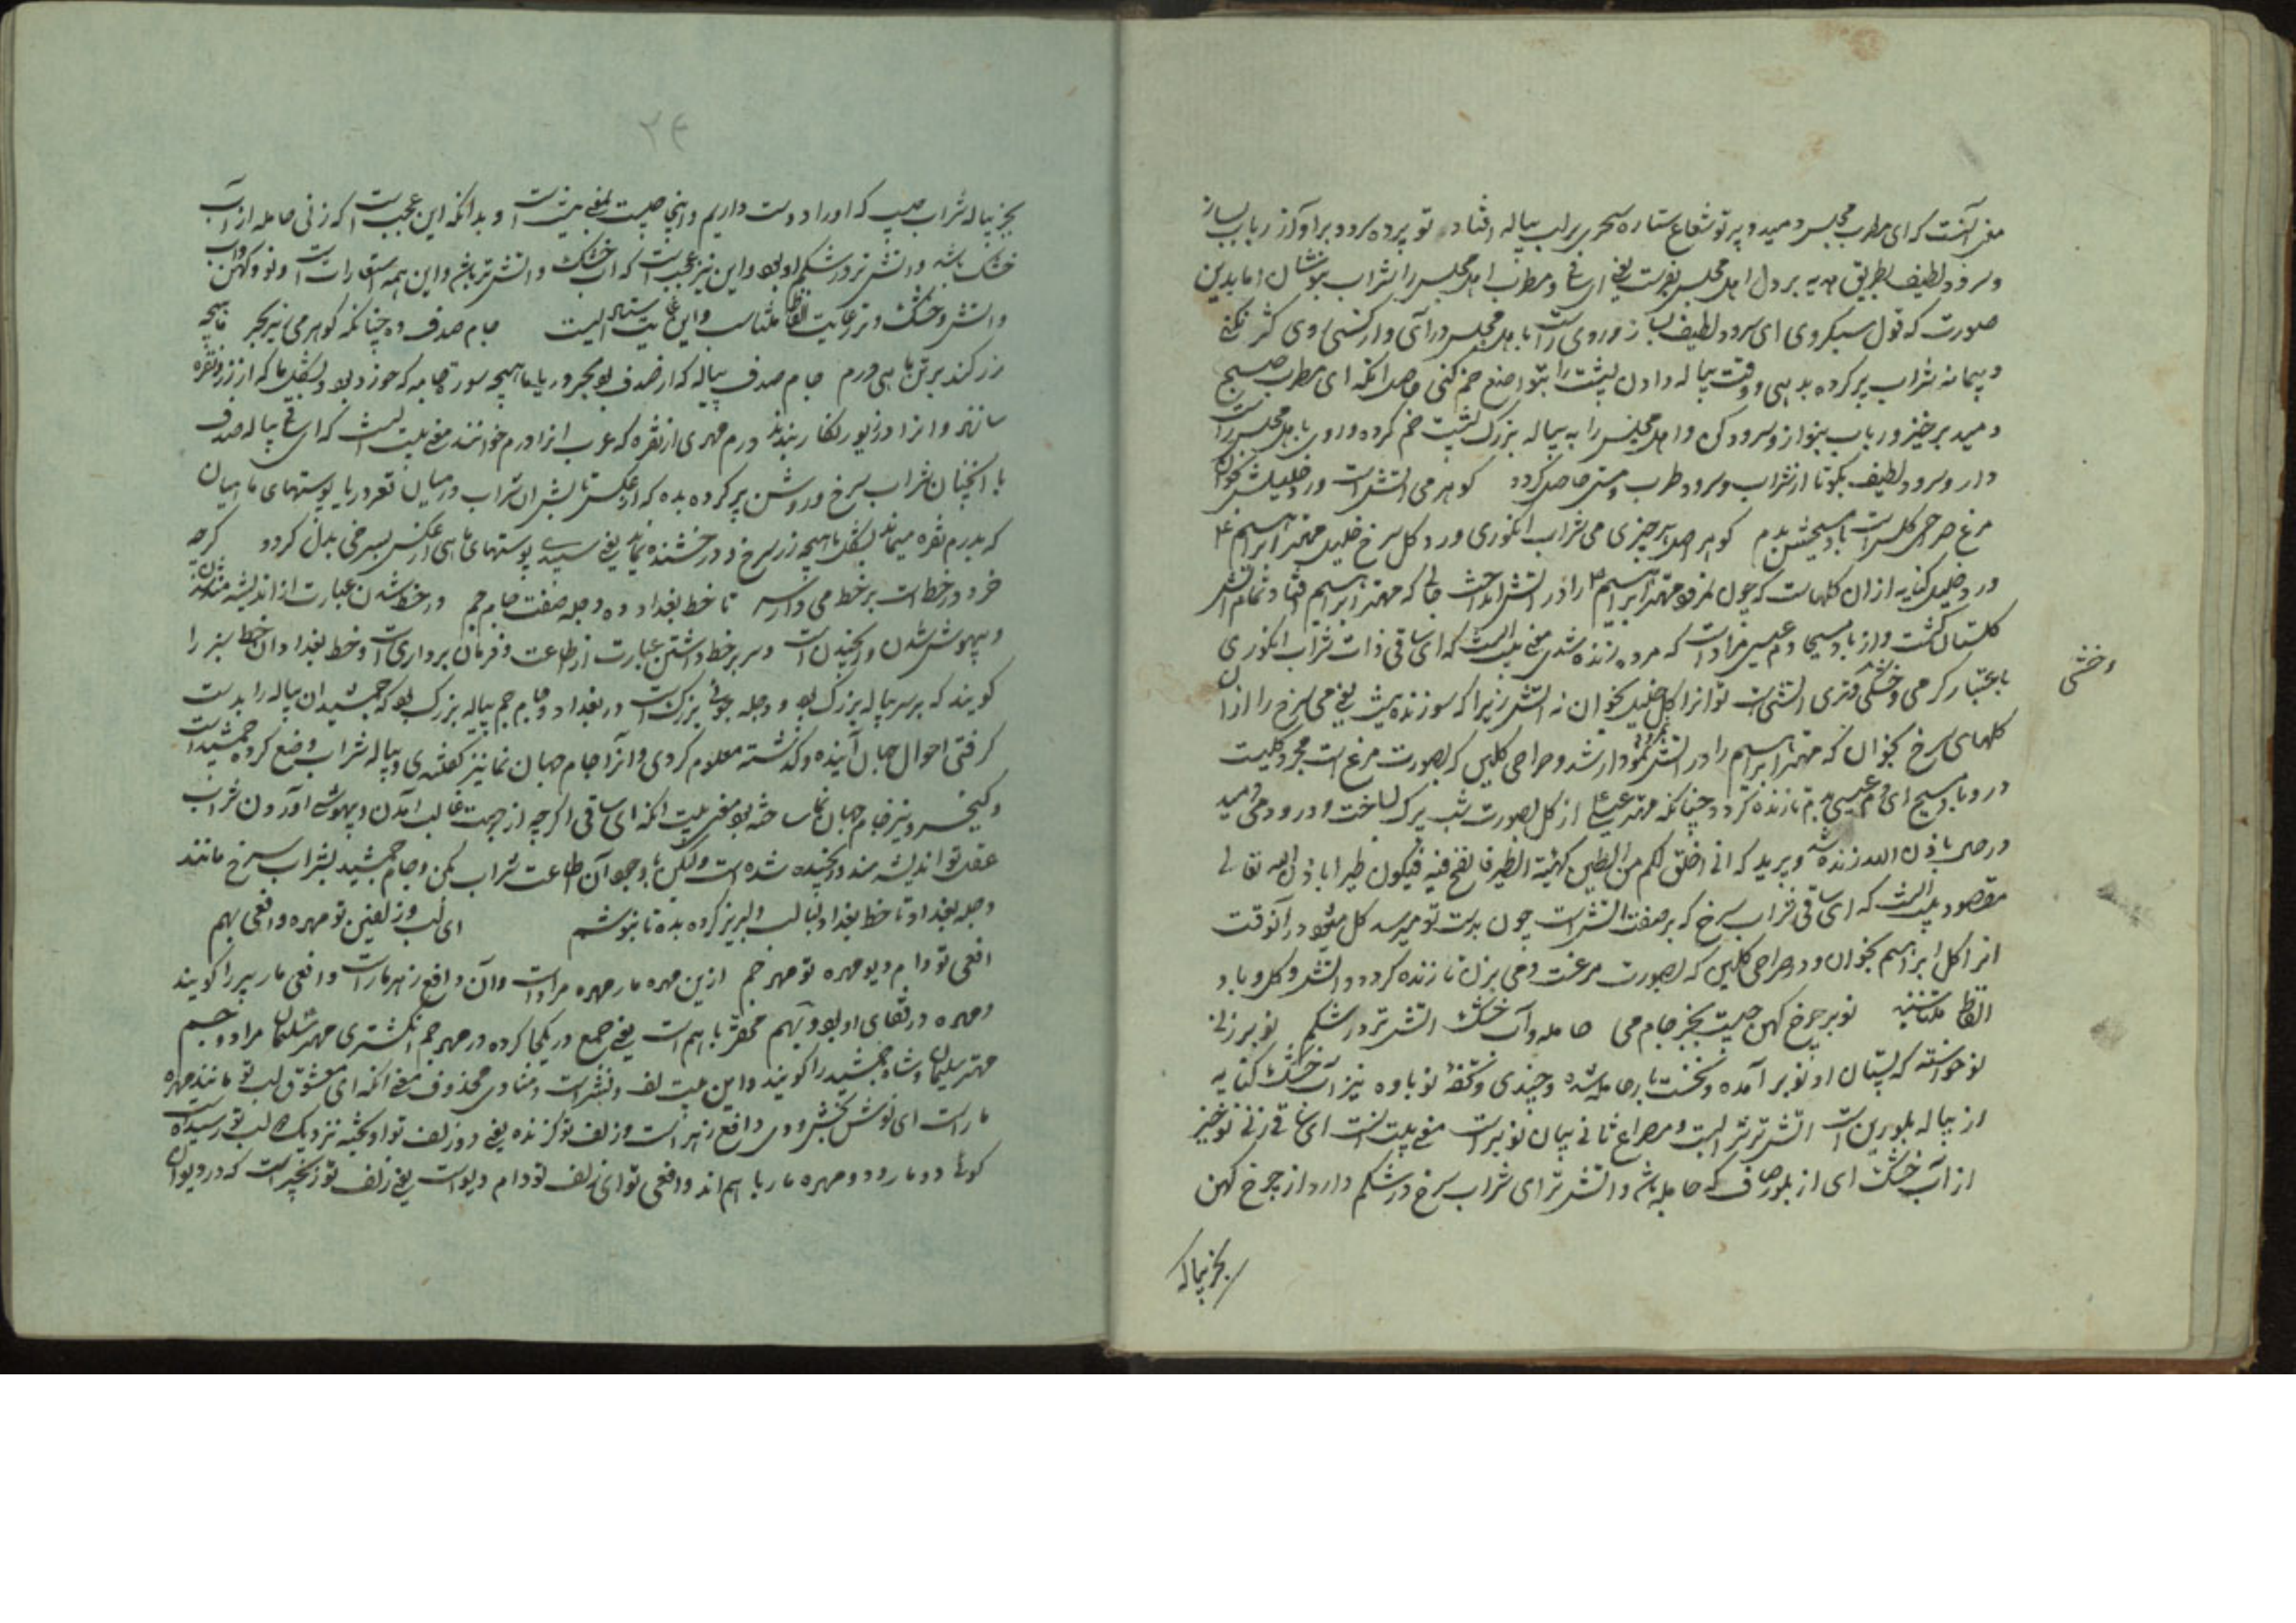 معنی آنست که ای مطرب مجلس دمید و پرتو شعاع ستاره سحری بر لب پیاله افتاد تو پرده سرود برآور از رباب بساز
و سرود لطیف بطریق هدیه بر دل اهل مجلس بفرست یعنی ای و مطرب اهل مجلس را شراب بنوشان اما بدین
صورت که قول سبکروی ای سرود لطیف بساز و روی راست با اهل مجلس در آی و از کشی وی کش نکنی
و پیمانه شراب پر کرده بدهی و وقت پیاله دادن پشت را بتواضع خم کنی حاصل آنکه ای مطرب صبح
دمید برخیز و رباب بنواز و سرود کن و اهل مجلس را به پیاله بزرگ پشت خم کرده و روی با اهل مجلس راست
دار و سرود لطیف بگو تا از شراب و سرود طرب و مستی حاصل گردد گوهر می آتش است ورد خلیلش بخوان
مرغ صراحی گلست باد مسیحش بدم گوهر اصل هر چیزی می شراب انگوری ورد گل سرخ خلیل مهتر ابراهیم ع
ورد خلیل کنایه از ان گلهاست که چون مهتر ابراهیم ع را در آتش انداخت جایی که مهتر ابراهیم افتاد تمام آتش
گلستان گشت و از باد مسیحا دم عیسی مراد است که مرده زنده شدی معنی بیت آنست که ای ساقی ذات شراب انگوری
باعتبار گرمی و خشکی و تری آتش است تو آنرا گل خلیل بخوان نه آتش زیرا که سوزنده نیست یعنی می سرخ را از ان
وخشی
گلهای سرخ بخوان که مهتر ابراهیم را در آتش نمرود نمودار شد و صراحی گلین که بصورت مرغ است مجرد گلیست
درو باد مسیح ای دم عیسی بدم تا زنده گردد چنانکه مهتر عیسی ع از گل بصورت شب پرک ساخت و در وی دمید
درحال باذن الله زنده شد و پرید که انی اخلق لکم من الطین کهیئة الطیر فانفخ فیه فیکون طیرا باذن الله تعالی
مقصود بیت آنست که ای ساقی شراب سرخ که بر صفت آتش است چون بدست تو میرسد گل میشود در آنوقت
انرا گل ابراهیم بخوان و در صراحی گلین که بصورت مرغست دمی بزن تا زنده گردد و آتش و گل و باد
الفاظ متناسبه نوبر چرخ کهن چیست بجز جام می حامله و آب خشک آتش تر در شکم نوبر زنی
نوخواسته که پستان او نوبر آمده و نخست بار حامله شده و چیزی و تحفه نوباوه نیز آب خشک کنایه
از پیاله بلورین است آتش تر شرابست و مصراع ثانی بیان نوبر است معنی بیت آنست ای ساقی زنی نوخیز
از آب خشک ای از بلور صاف که حامله باشد و آتش تر ای شراب سرخ در شکم دارد از چرخ کهن
بجز پیاله
۲۴
بجز پیاله شراب چیست که او را دوست داریم و اینجا چیست بمعنی نیست است و بدانکه این عجب است که زنی حامله از آب
خشک باشد و آتش تر در شکم او بود و این نیز عجب است که آب خشک و آتش تر باشد و این همه استعارات است و نو و کهن و آب
و آتش و خشک و تر رعایت الفاظ متناسب و این غایت استادیست جام صدف ده چنانکه گوهر می نیز بحر ماهیچه
زر کند بر تن ماهی درم جام صدف پیاله که از صدف بود بحر دریا ماهیچه سور قامه که خورد بود و بشکل ما که از زر و نقره
سازند و انرا در زیور نگار بندند درم مهری از نقره که عرب انرا درم خوانند معنی بیت آنست که ای ساقی پیاله صدف
با آنچنان شراب سرخ و روشن پر کرده بده که از عکس تابش ان شراب در میان قعر دریا پوستهای ماهیان
که بدرم نقره میماند بشکل ماهیچه زر سرخ و درخشنده نماید یعنی سپیدی پوستهای ماهی از عکس بسرخی بدل گردد گرچه
خرد در خط است بر خط می دار سر تا خط بغداد ده دجله صفت جام جم در خط شدن عبارت از اندیشه مند شدن
و بیهوش شدن و رنجیدن است و سر بر خط داشتن عبارت از طاعت و فرمان برداری است و خط بغداد ان خط سبز را
گویند که بر سر پیاله بزرگ بود و دجله جوی بزرگ است در بغداد و جام جم پیاله بزرگ بود که جمشید ان پیاله را بدست
گرفتی احوال جهان آینده و گذشته معلوم کردی و آنرا جام جهان نما نیز گفتندی و پیاله شراب وضع کرده جمشید است
و کیخسرو نیز جام جهان نما ساخته بود معنی بیت آنکه ای ساقی اگرچه از جهت غالب آمدن و بیهوشی آوردن شراب
عقل تو اندیشه مند و رنجیده شده است ولکن باوجود آن اطاعت شراب بکن و جام جمشید بشراب سرخ مانند
دجله بغداد تا خط بغداد لبالب و لبریز کرده بده تا بنوشم ای لب و زلفین تو مهره و افعی بهم
افعی تو دام دیو مهره تو مهر جم ازین مهره مار مهره مراد است و آن دافع زهر مار است و افعی مار پیر را گویند
و مهره در قفای او بود و بهم مخفف باهم است یعنی جمع در یکجا کرده و مهر جم انگشتری مهتر سلیمان مراد و جم
مهتر سلیمان و شاه جمشید را گویند و این بیت لف و نشر است و منادی محذوف معنی آنکه ای معشوق لب تو مانند مهره
مار است ای نوش بخش و دافع زهر است و زلف تو گزنده یعنی دو زلف تو آویخته نزدیک لب تو رسیده است
گوئی دو مار و دو مهره مار باهم اند و افعی تو ای زلف تو دام دیو است یعنی زلف تو زنجیر است که در دیوان